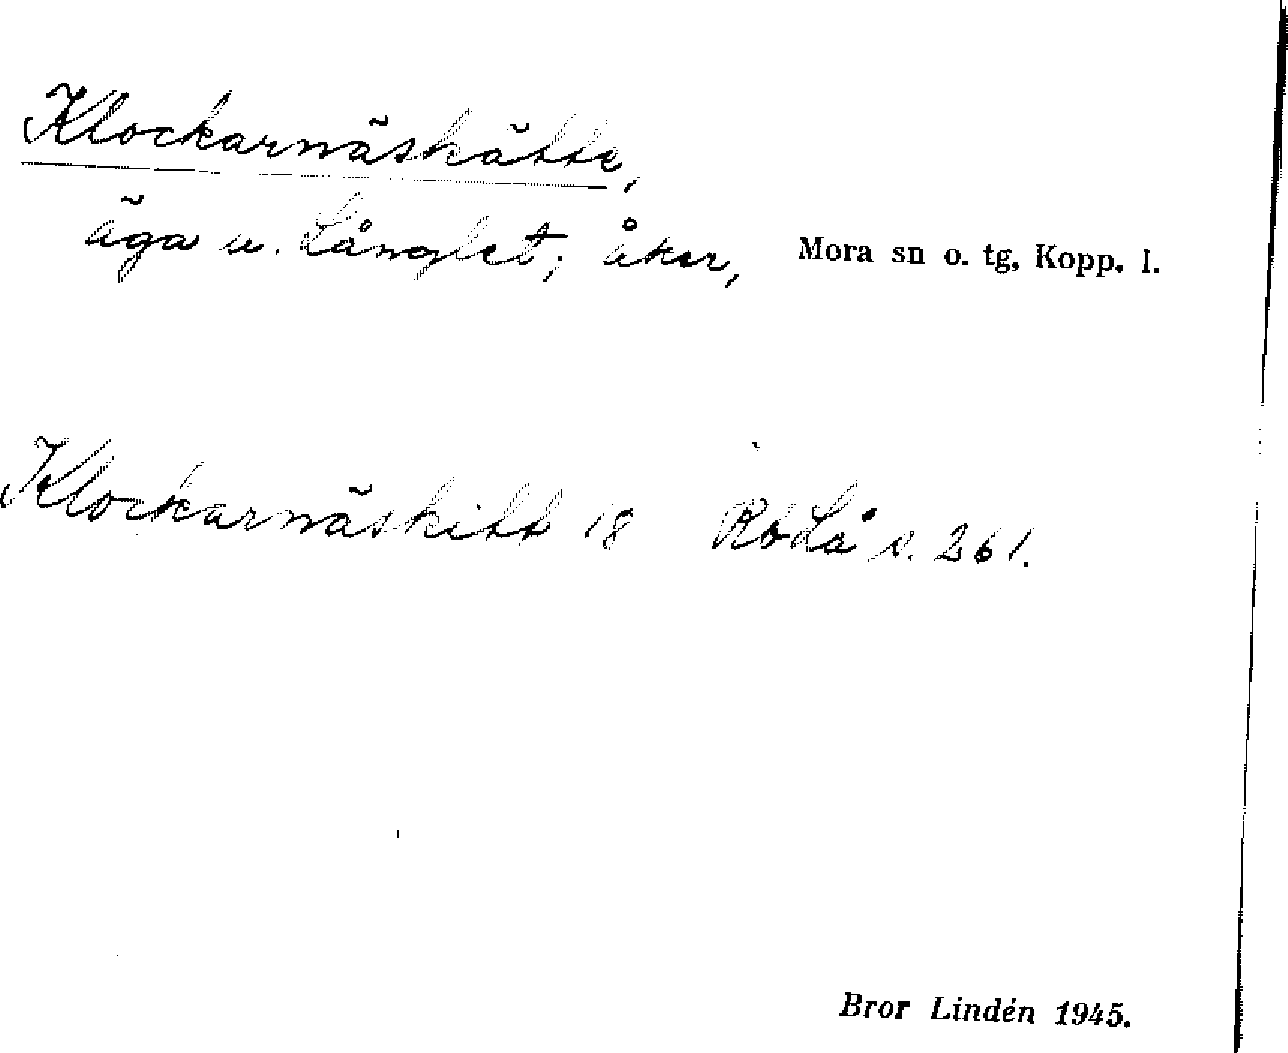 Klockarnäskätte,
äga u. Långlet; åker, Mora sn o. tg, Kopp. l.
Klockarnäskitt 18 RbLå s. 261.
Bror Lindén 1945.